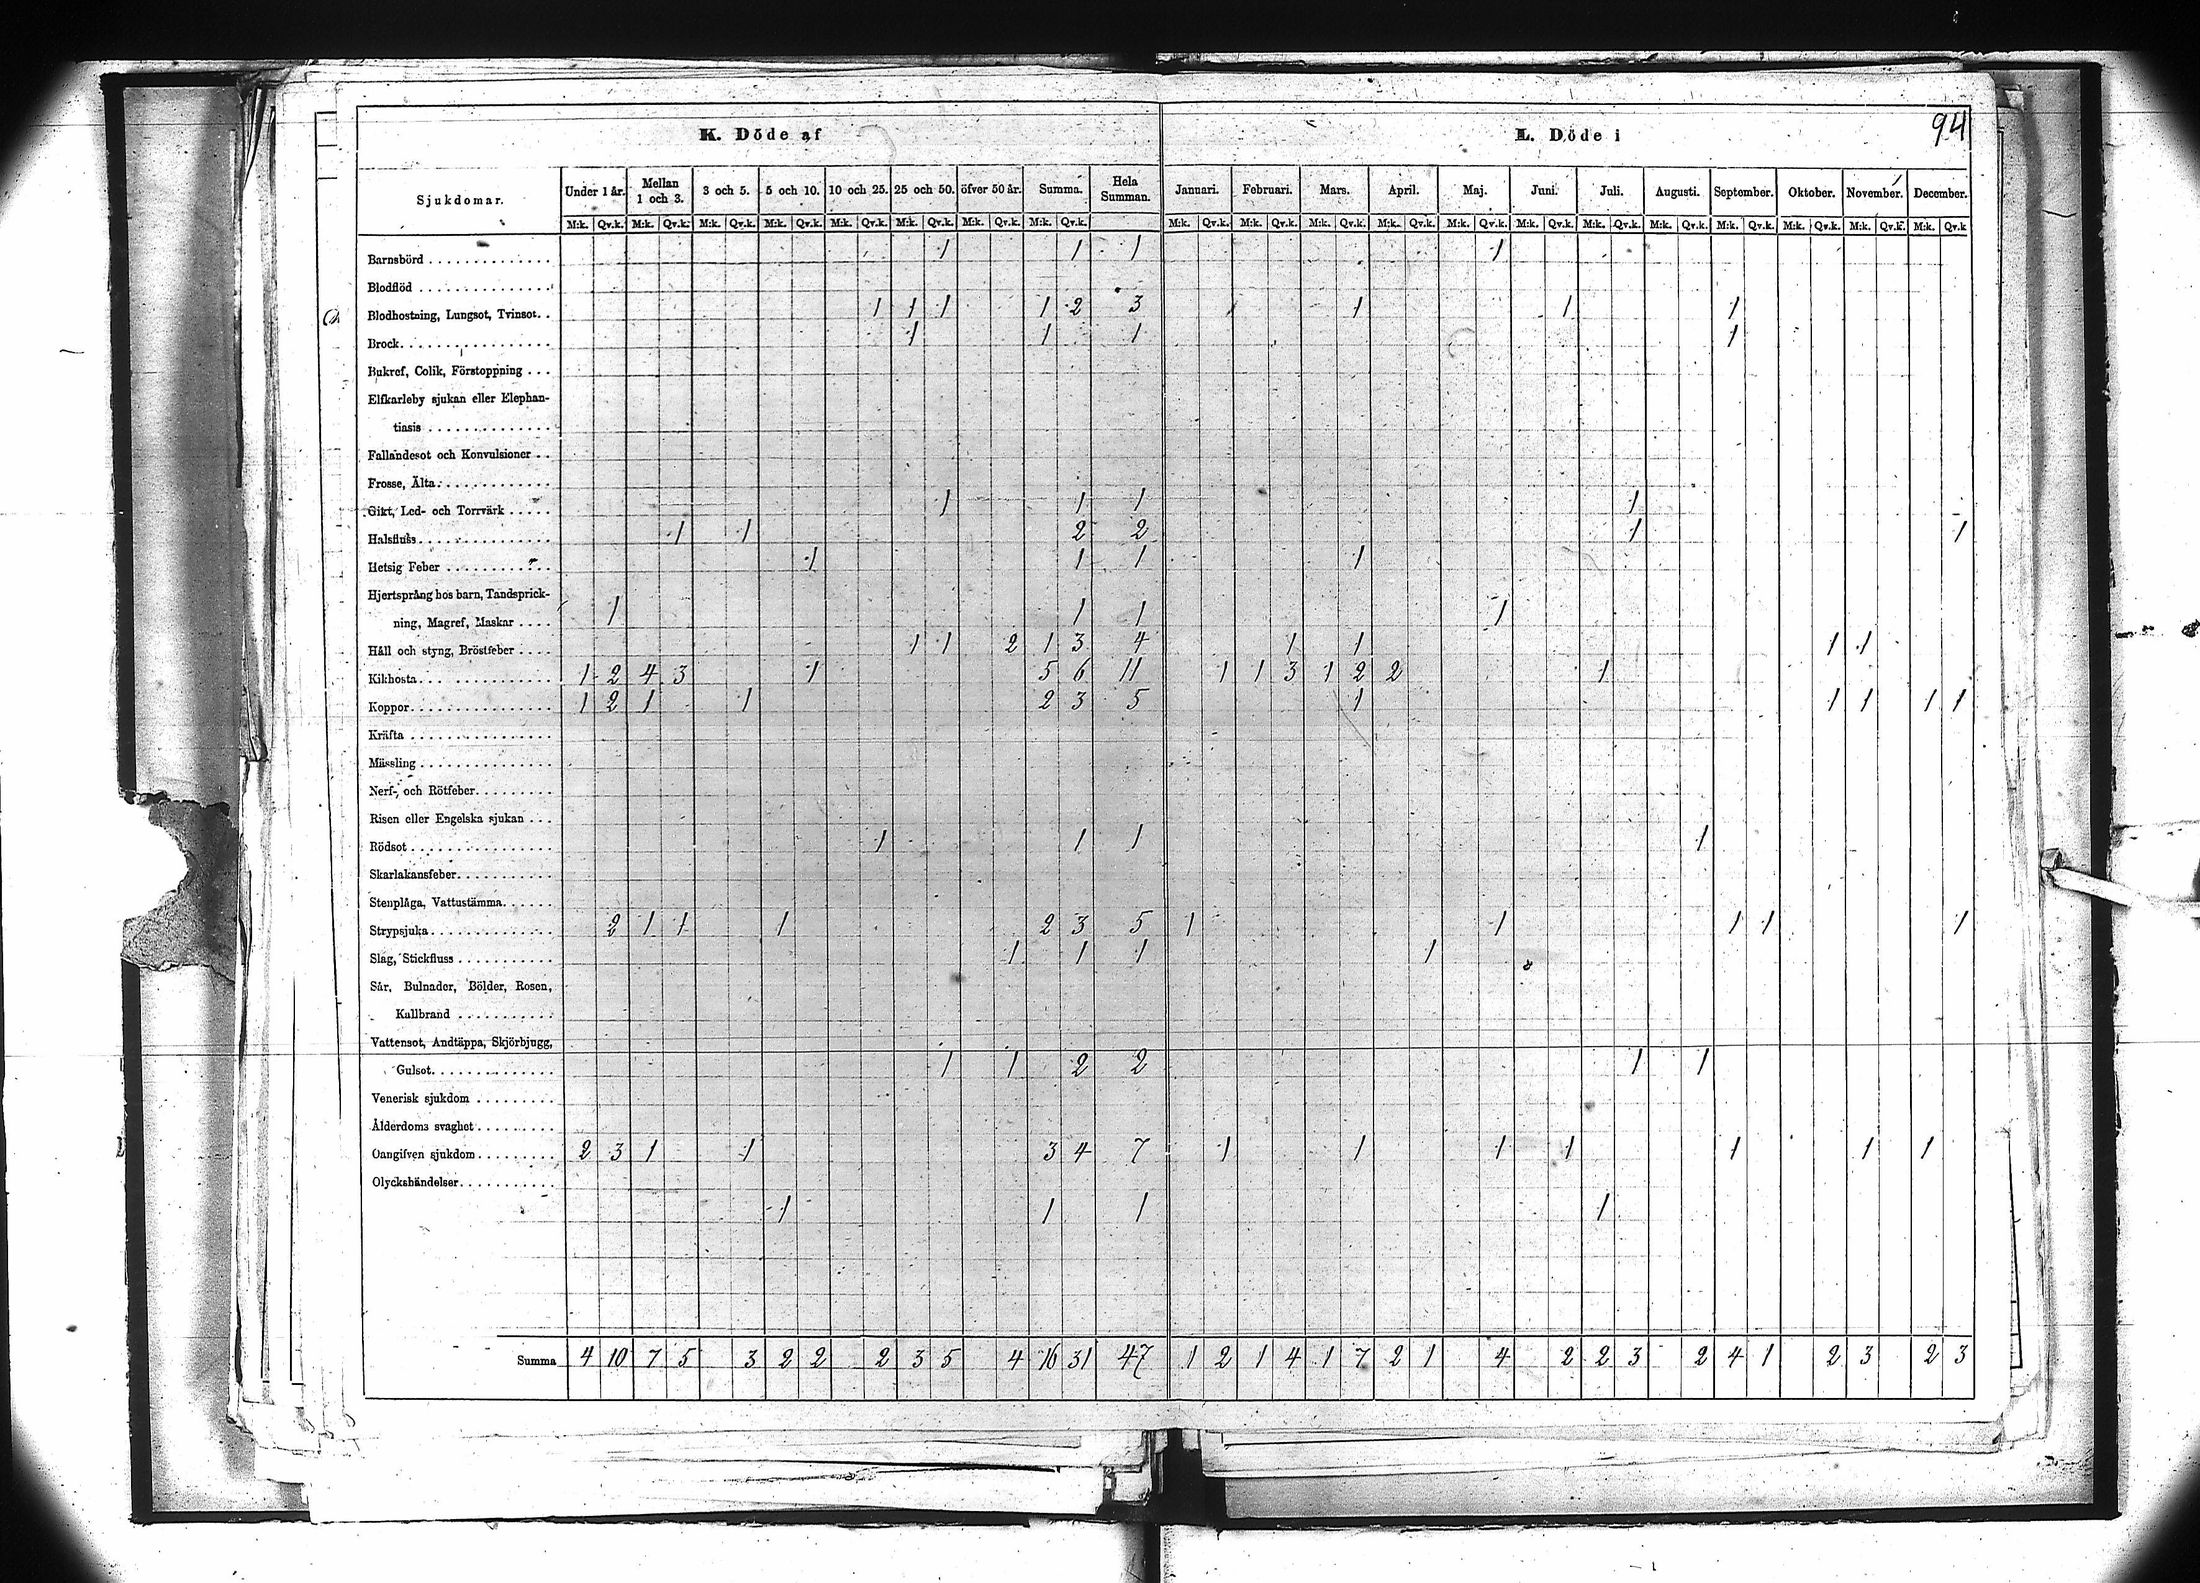 94
K. Döde af L. Döde i
Sjukdomar. Under 1 år. Mellan 1 och 3. 3 och 5. 5 och 10. 10 och 25. 25 och 50. öfver 50 år. Summa. Hela Summan. Januari. Februari. Mars. April. Maj. Juni. Juli. Augusti. September. Oktober. November. December.
M:k. Qv.k. M:k. Qv.k. M:k. Qv.k. M:k. Qv.k. M:k. Qv.k. M:k. Qv.k. M:k. Qv.k. M:k. Qv.k. M:k. Qv.k. M:k. Qv.k. M:k. Qv.k. M:k. Qv.k. M:k. Qv.k. M:k. Qv.k. M:k. Qv.k. M:k. Qv.k. M:k. Qv.k. M:k. Qv.k. M:k. Qv.k. M:k. Qv.k
Barnsbörd 1 1 1 1
Blodflöd
Blodhostning, Lungsot, Tvinsot. 1 1 1 1 2 3 1 1 1
Brock 1 1 1 1
Bukref, Colik, Förstoppning
Elfkarleby sjukan eller Elephan-
tiasis
Fallandesot och Konvulsioner
Frosse, Älta
Gikt, Led- och Torrvärk 1 1 1 1
Halsfluss 1 1 2 2 1 1
Hetsig Feber 1 1 1 1
Hjertsprång hos barn, Tandsprick-
ning, Magref, Maskar 1 1 1 1
Håll och styng, Bröstfeber 1 1 2 1 3 4 1 1 1 1
Kikhosta 1 2 4 3 1 5 6 11 1 1 3 1 2 2 1
Koppor 1 2 1 1 2 3 5 1 1 1 1 1
Kräfta
Mässling
Nerf- och Rötfeber
Risen eller Engelska sjukan
Rödsot 1 1 1 1
Skarlakansfeber
Stenplåga, Vattustämma
Strypsjuka 2 1 1 1 2 3 5 1 1 1 1 1
Slag, Stickfluss 1 1 1 1
Sår, Bulnader, Bölder, Rosen,
Kallbrand
Vattensot, Andtäppa, Skjörbjugg,
Gulsot 1 1 2 2 1 1
Venerisk sjukdom
Ålderdoms svaghet
Oangifven sjukdom 2 3 1 1 3 4 7 1 1 1 1 1 1 1
Olyckshändelser
1 1 1 1
Summa 4 10 7 5 3 2 2 2 3 5 4 16 31 47 1 2 1 4 1 7 2 1 4 2 2 3 2 4 1 2 3 2 3